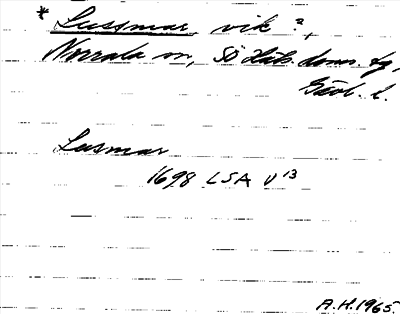 * Lussmar, vik ?,
Norrala sn, Sö Häls. doms. tg,
Gävl. l.
Lusmar
1698 LSA V 13
A.H. 1965.